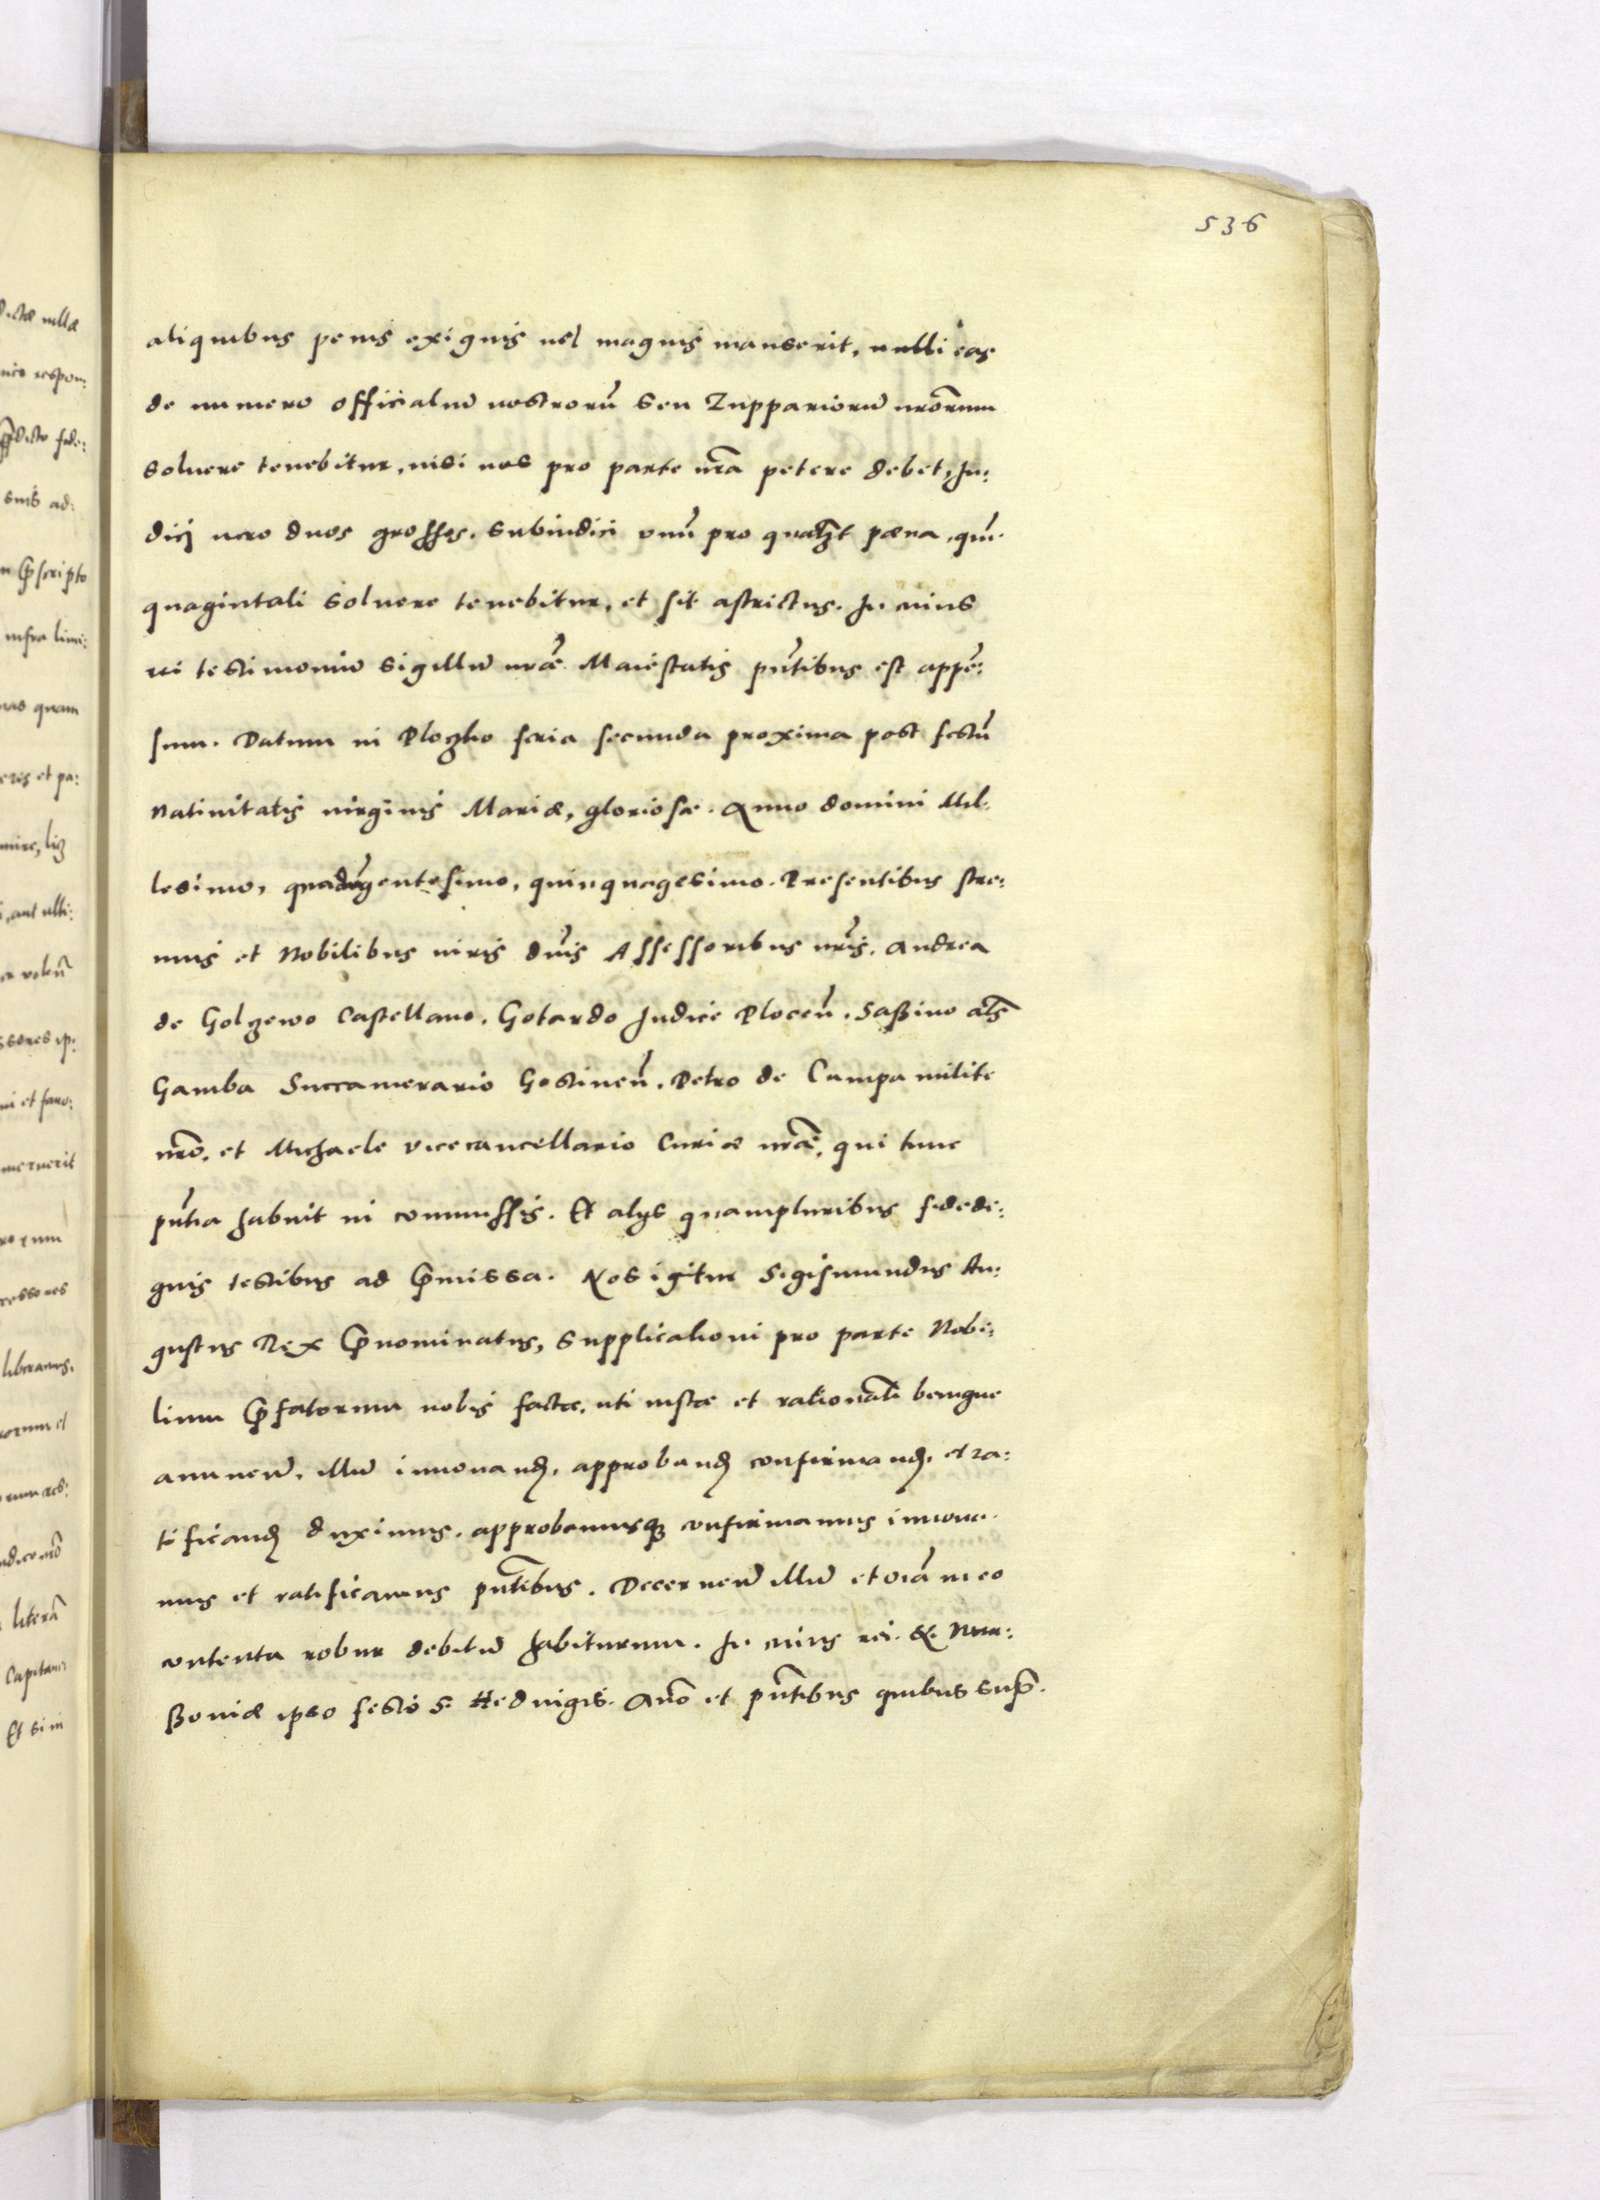 536
aliquibus penis exiguis uel magnis manserit, nulli eas
de numero officialiū nostrorū seu Zuppariorū nrōrum
soluere tenebitur, nisi nos pro parte nrā petere debet, Ju:
dicj uero duos grosses. Subiudici vnū pro qualzt pœna, quī
quagintali soluere tenebitur, et sit astrictus. In cuius
rei testimoniū sigillū nrāe Maiestatis pntibus est appē:
sum. Datum in Ploczko feria secunda proxima post festū
Natiuitatis virginis Mariæ, gloriosæ. Anno domini Mil:
lesimo, quadringentesimo, quinquagesimo. Presentibus stre:
nuis et Nobilibus uiris dnis Assessoribus nris. Andrea
de Golczewo Castellano. Gotardo Judice Plocen̄. Saßino als
Gamba Succamerario Gostinen̄. Petro de Cumpa milite
nrō. et Michaele vicecancellario Curiæ nrāe, qui tunc
pntia habuit in commissis. Et alys quampluribus fidedi:
gnis testibus ad p̄missa. Nos igitur Sigismundus Au:
gustus Rex p̄nominatus, supplicationi pro parte Nobi:
lium p̄fatorum nobis factæ, uti iustæ et rationali benigne
annuen̄. illud innouand. approband confirmand. et ra:
tificand duximus. approbamusq confirmamus innoua:
mus et ratificamus pntibus. Decernen̄ illud et oīa in eo
contenta robur debitū habiturum. In cuius rei. &. Nar:
ßoviæ ipso festo S. Heduigis. Anō et pntibus quibus sup̄.
dictæ nullæ
respon:
p̄dicto fide:
suis ad:
p̄scripto
infra limi:
quam
et pa:
, aut ulti:
et fauo:
meruerit
liberamus.
literā
Capitanei
Et si in